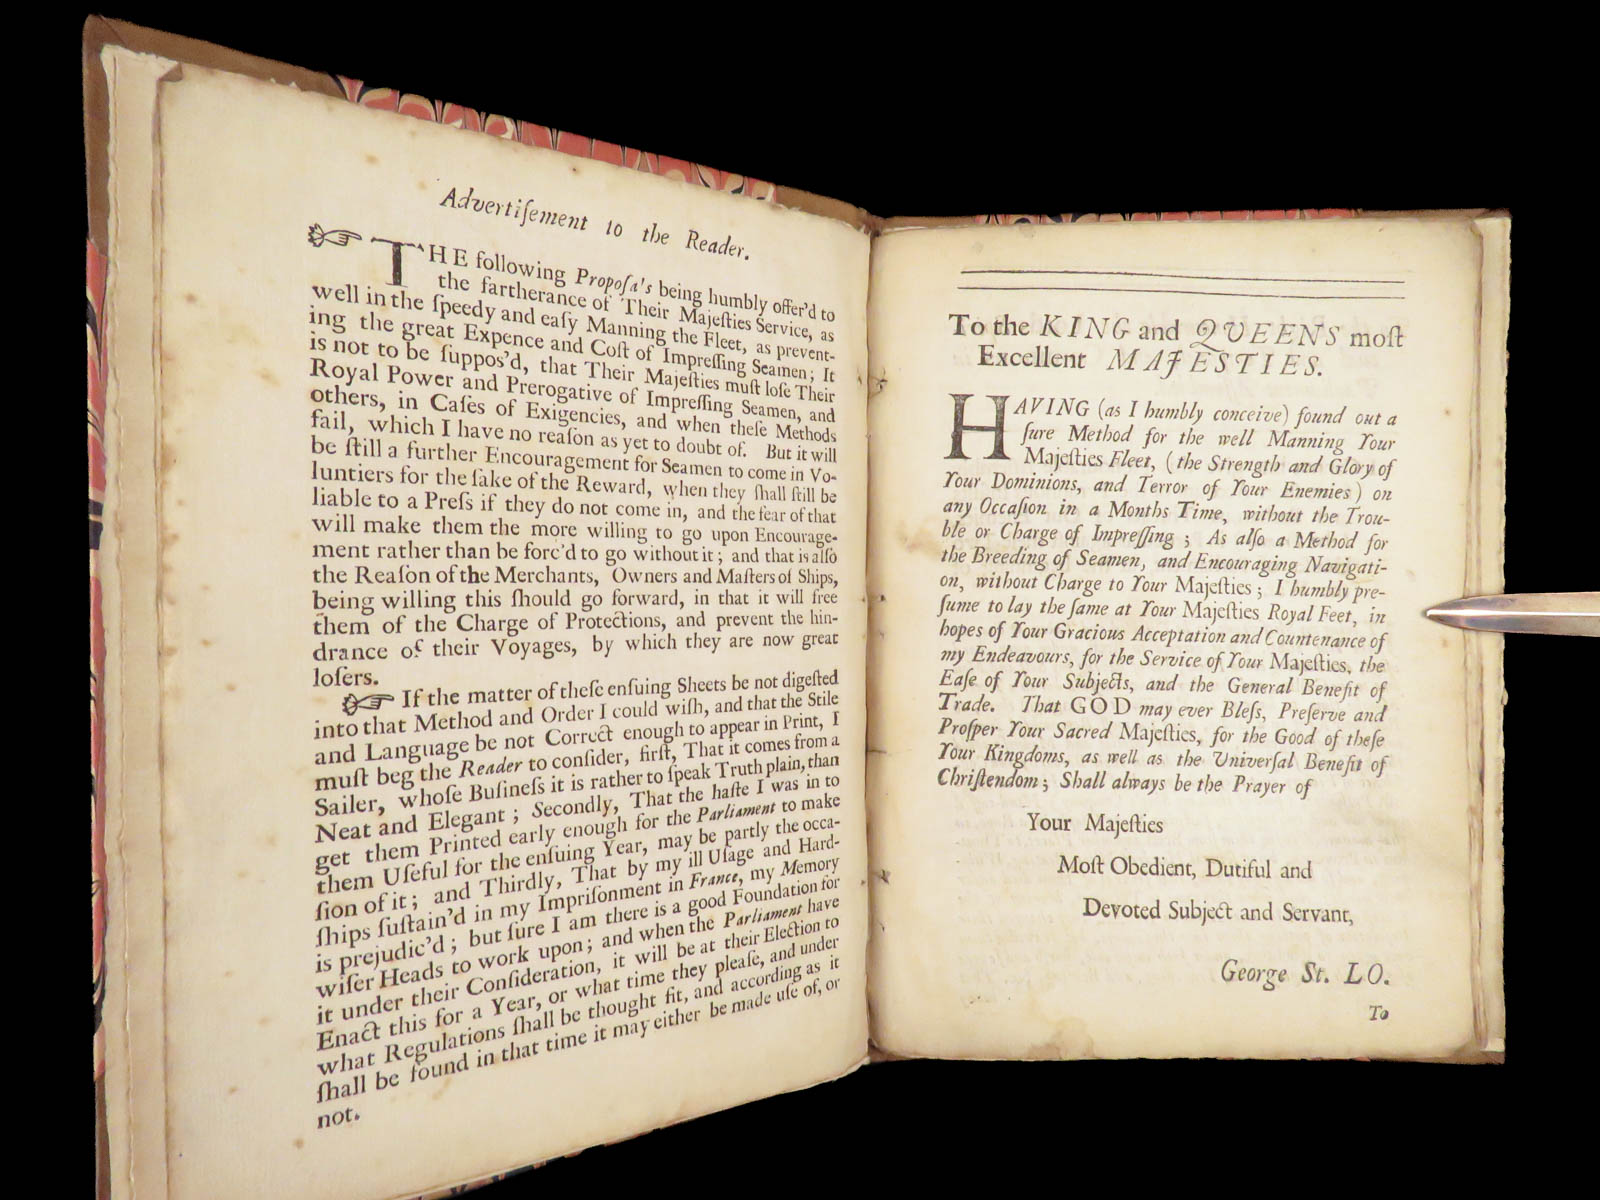 Advertiſement to the Reader.
THE following Propoſa's being humbly offer'd to
the fartherance of Their Majeſties Service, as
well in the ſpeedy and eaſy Manning the Fleet, as prevent-
ing the great Expence and Coſt of Impreſſing Seamen; It
is not to be ſuppos'd, that Their Majeſties muſt loſe Their
Royal Power and Prerogative of Impreſſing Seamen, and
others, in Caſes of Exigencies, and when theſe Methods
fail, which I have no reaſon as yet to doubt of. But it will
be ſtill a further Encouragement for Seamen to come in Vo-
luntiers for the ſake of the Reward, when they ſhall ſtill be
liable to a Preſs if they do not come in, and the fear of that
will make them the more willing to go upon Encourage-
ment rather than be forc'd to go without it; and that is alſo
the Reaſon of the Merchants, Owners and Maſters of Ships,
being willing this ſhould go forward, in that it will free
them of the Charge of Protections, and prevent the hin-
drance of their Voyages, by which they are now great
loſers.
If the matter of theſe enſuing Sheets be not digeſted
into that Method and Order I could wiſh, and that the Stile
and Language be not Correct enough to appear in Print, I
muſt beg the Reader to conſider, firſt, That it comes from a
Sailer, whoſe Buſineſs it is rather to ſpeak Truth plain, than
Neat and Elegant; Secondly, That the haſte I was in to
get them Printed early enough for the Parliament to make
them Uſeful for the enſuing Year, may be partly the occa-
ſion of it; and Thirdly, That by my ill Uſage and Hard-
ſhips ſuſtain'd in my Impriſonment in France, my Memory
is prejudic'd; but ſure I am there is a good Foundation for
wiſer Heads to work upon; and when the Parliament have
it under their Conſideration, it will be at their Election to
Enact this for a Year, or what time they pleaſe, and under
what Regulations ſhall be thought fit, and according as it
ſhall be found in that time it may either be made uſe of, or
not.
To the KING and QUEENS moſt
Excellent MAJESTIES.
HAVING (as I humbly conceive) found out a
ſure Method for the well Manning Your
Majeſties Fleet, (the Strength and Glory of
Your Dominions, and Terror of Your Enemies) on
any Occaſion in a Months Time, without the Trou-
ble or Charge of Impreſſing; As alſo a Method for
the Breeding of Seamen, and Encouraging Navigati-
on, without Charge to Your Majeſties; I humbly pre-
ſume to lay the ſame at Your Majeſties Royal Feet, in
hopes of Your Gracious Acceptation and Countenance of
my Endeavours, for the Service of Your Majeſties, the
Eaſe of Your Subjects, and the General Benefit of
Trade. That GOD may ever Bleſs, Preſerve and
Proſper Your Sacred Majeſties, for the Good of theſe
Your Kingdoms, as well as the Univerſal Benefit of
Chriſtendom; Shall always be the Prayer of
Your Majeſties
Moſt Obedient, Dutiful and
Devoted Subject and Servant,
George St. LO.
To